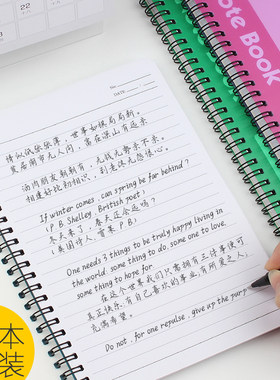 22
Note Book
No :
Date :
情似纸张张薄，世事如棋局局新。
贫居闹市无人问，富在深山有远亲
酒肉朋友朝朝有，无钱无势亲不亲。
相逢好比初相识，到老终无怨恨心。
If winter comes, can spring be far behind?
(P.B. Shelley, British poet)
冬天来了，春天还会远吗？
(英国诗人，雪莱 P.B)
One needs 3 things to be truly happy living in
the world: some thing to do, some one to love,
some thing to hope for.
在这个世界我们只需拥有三件事便可
真正快乐：有自己喜欢的事业；有所爱之人；
充满希望。
Do not, for one repulse, give up the purp
本
装